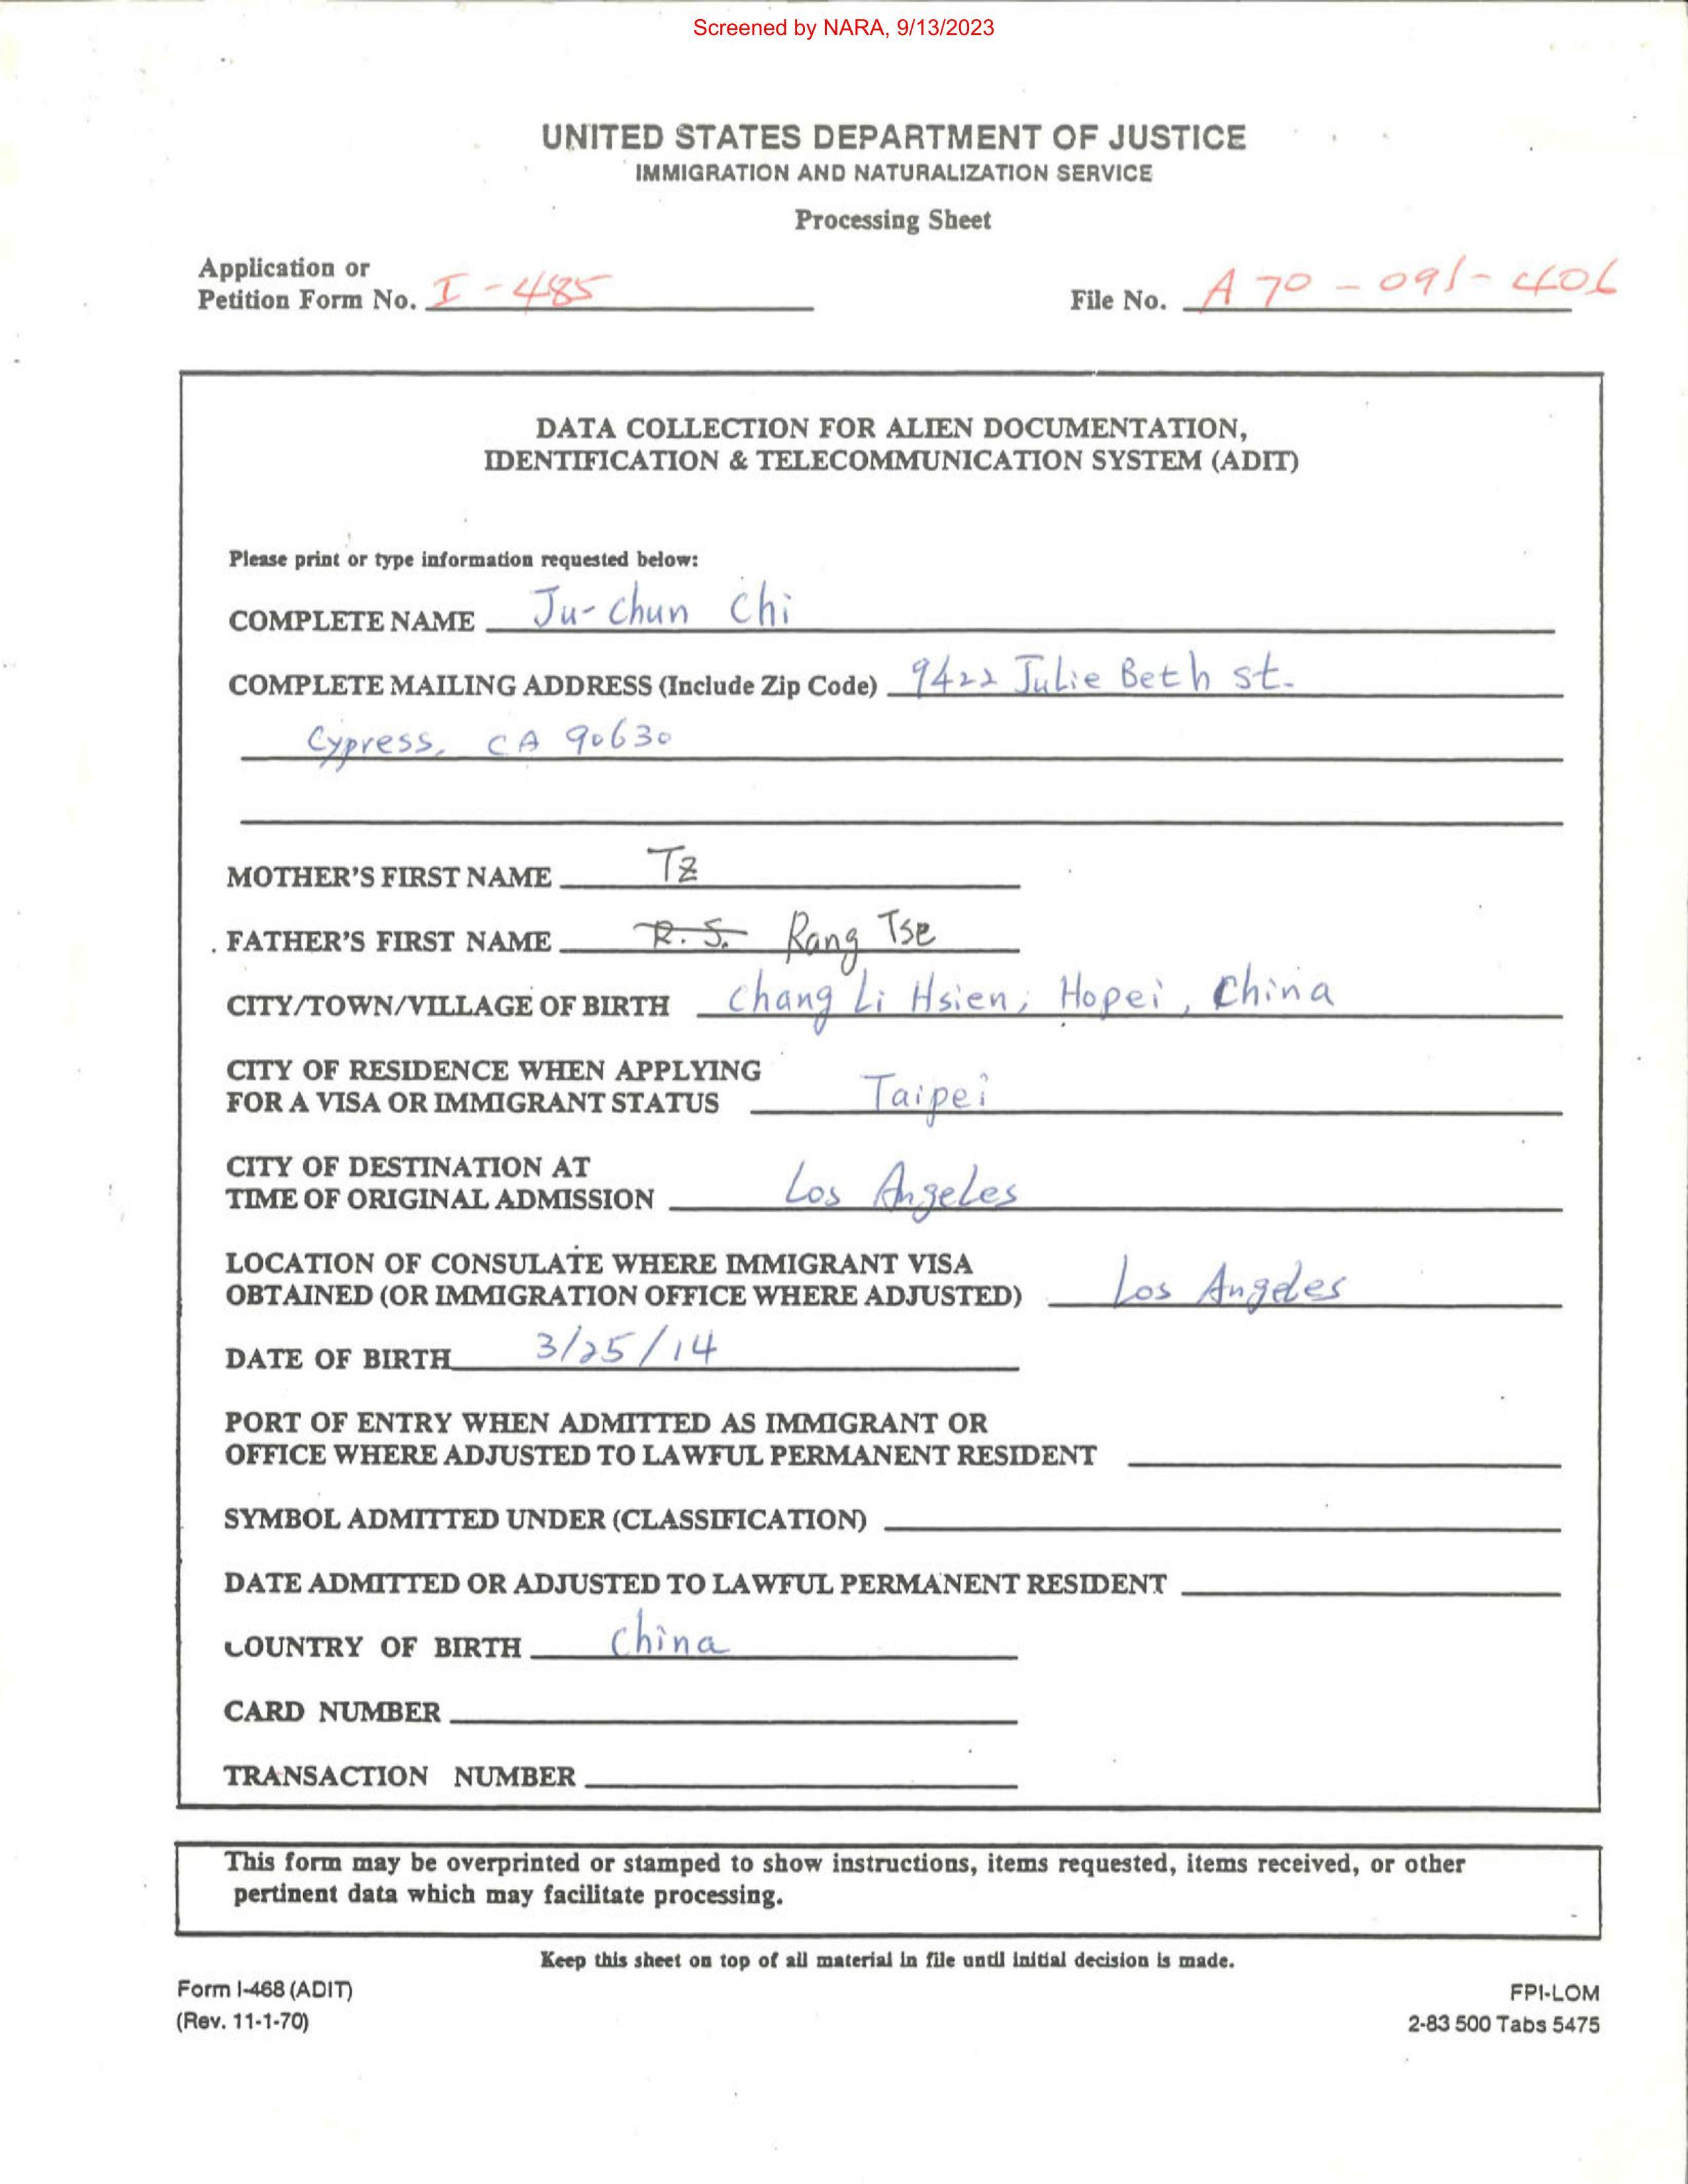 Screened by NARA, 9/13/2023
UNITED STATES DEPARTMENT OF JUSTICE
IMMIGRATION AND NATURALIZATION SERVICE
Processing Sheet
Application or
Petition Form No. I-485
File No. A 70-091-406
DATA COLLECTION FOR ALIEN DOCUMENTATION,
IDENTIFICATION & TELECOMMUNICATION SYSTEM (ADIT)
Please print or type information requested below:
COMPLETE NAME Ju-Chun Chi
COMPLETE MAILING ADDRESS (Include Zip Code) 9422 Julie Beth st.
Cypress, CA 90630
MOTHER'S FIRST NAME Tz
FATHER'S FIRST NAME R. S. Rang Tse
CITY/TOWN/VILLAGE OF BIRTH Chang Li Hsien, Hopei, China
CITY OF RESIDENCE WHEN APPLYING
FOR A VISA OR IMMIGRANT STATUS Taipei
CITY OF DESTINATION AT
TIME OF ORIGINAL ADMISSION Los Angeles
LOCATION OF CONSULATE WHERE IMMIGRANT VISA
OBTAINED (OR IMMIGRATION OFFICE WHERE ADJUSTED) Los Angeles
DATE OF BIRTH 3/25/14
PORT OF ENTRY WHEN ADMITTED AS IMMIGRANT OR
OFFICE WHERE ADJUSTED TO LAWFUL PERMANENT RESIDENT
SYMBOL ADMITTED UNDER (CLASSIFICATION)
DATE ADMITTED OR ADJUSTED TO LAWFUL PERMANENT RESIDENT
COUNTRY OF BIRTH China
CARD NUMBER
TRANSACTION NUMBER
This form may be overprinted or stamped to show instructions, items requested, items received, or other
pertinent data which may facilitate processing.
Keep this sheet on top of all material in file until initial decision is made.
Form I-468 (ADIT)
(Rev. 11-1-70)
FPI-LOM
2-83 500 Tabs 5475